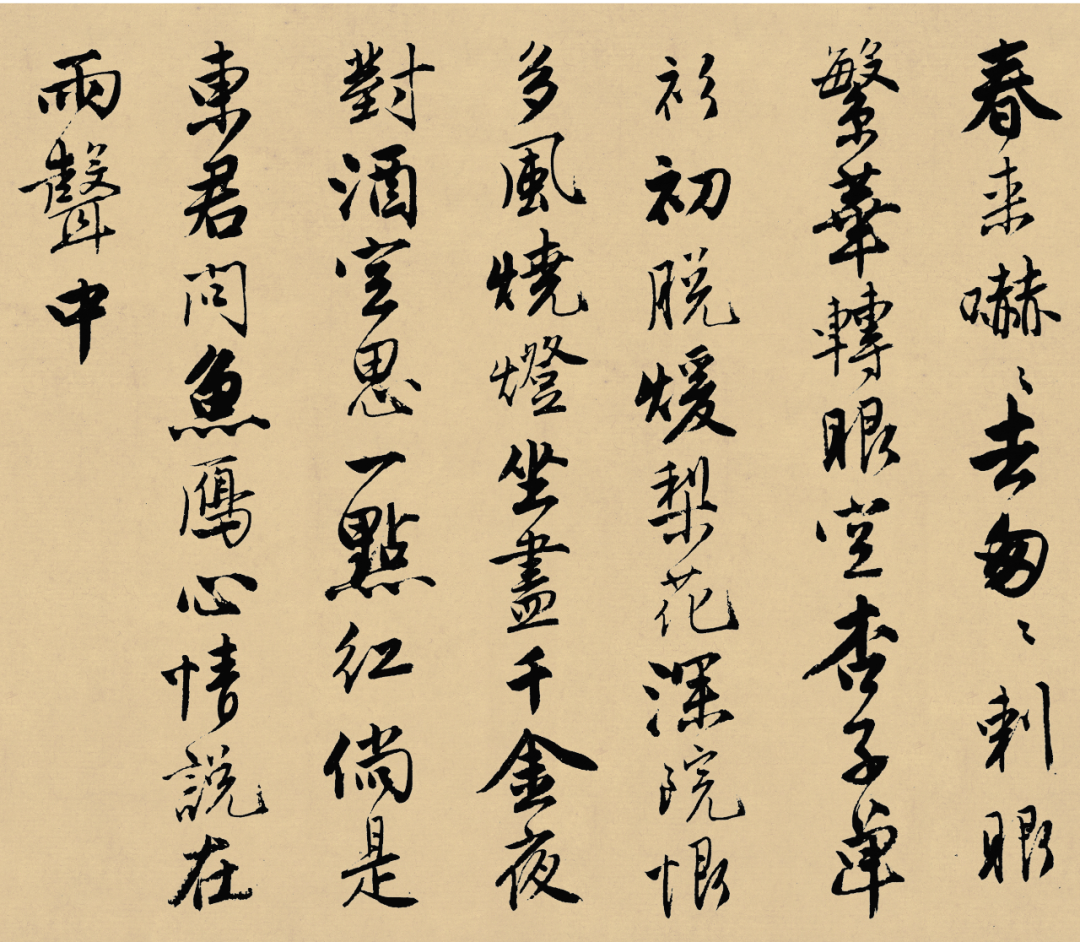 春来嚇〻去匆〻刺眼
繁華轉眼空杏子單
衫初脫煖梨花深院恨
多風燒燈坐盡千金夜
對酒空思一點紅倘是
東君問魚鴈心情說在
雨聲中